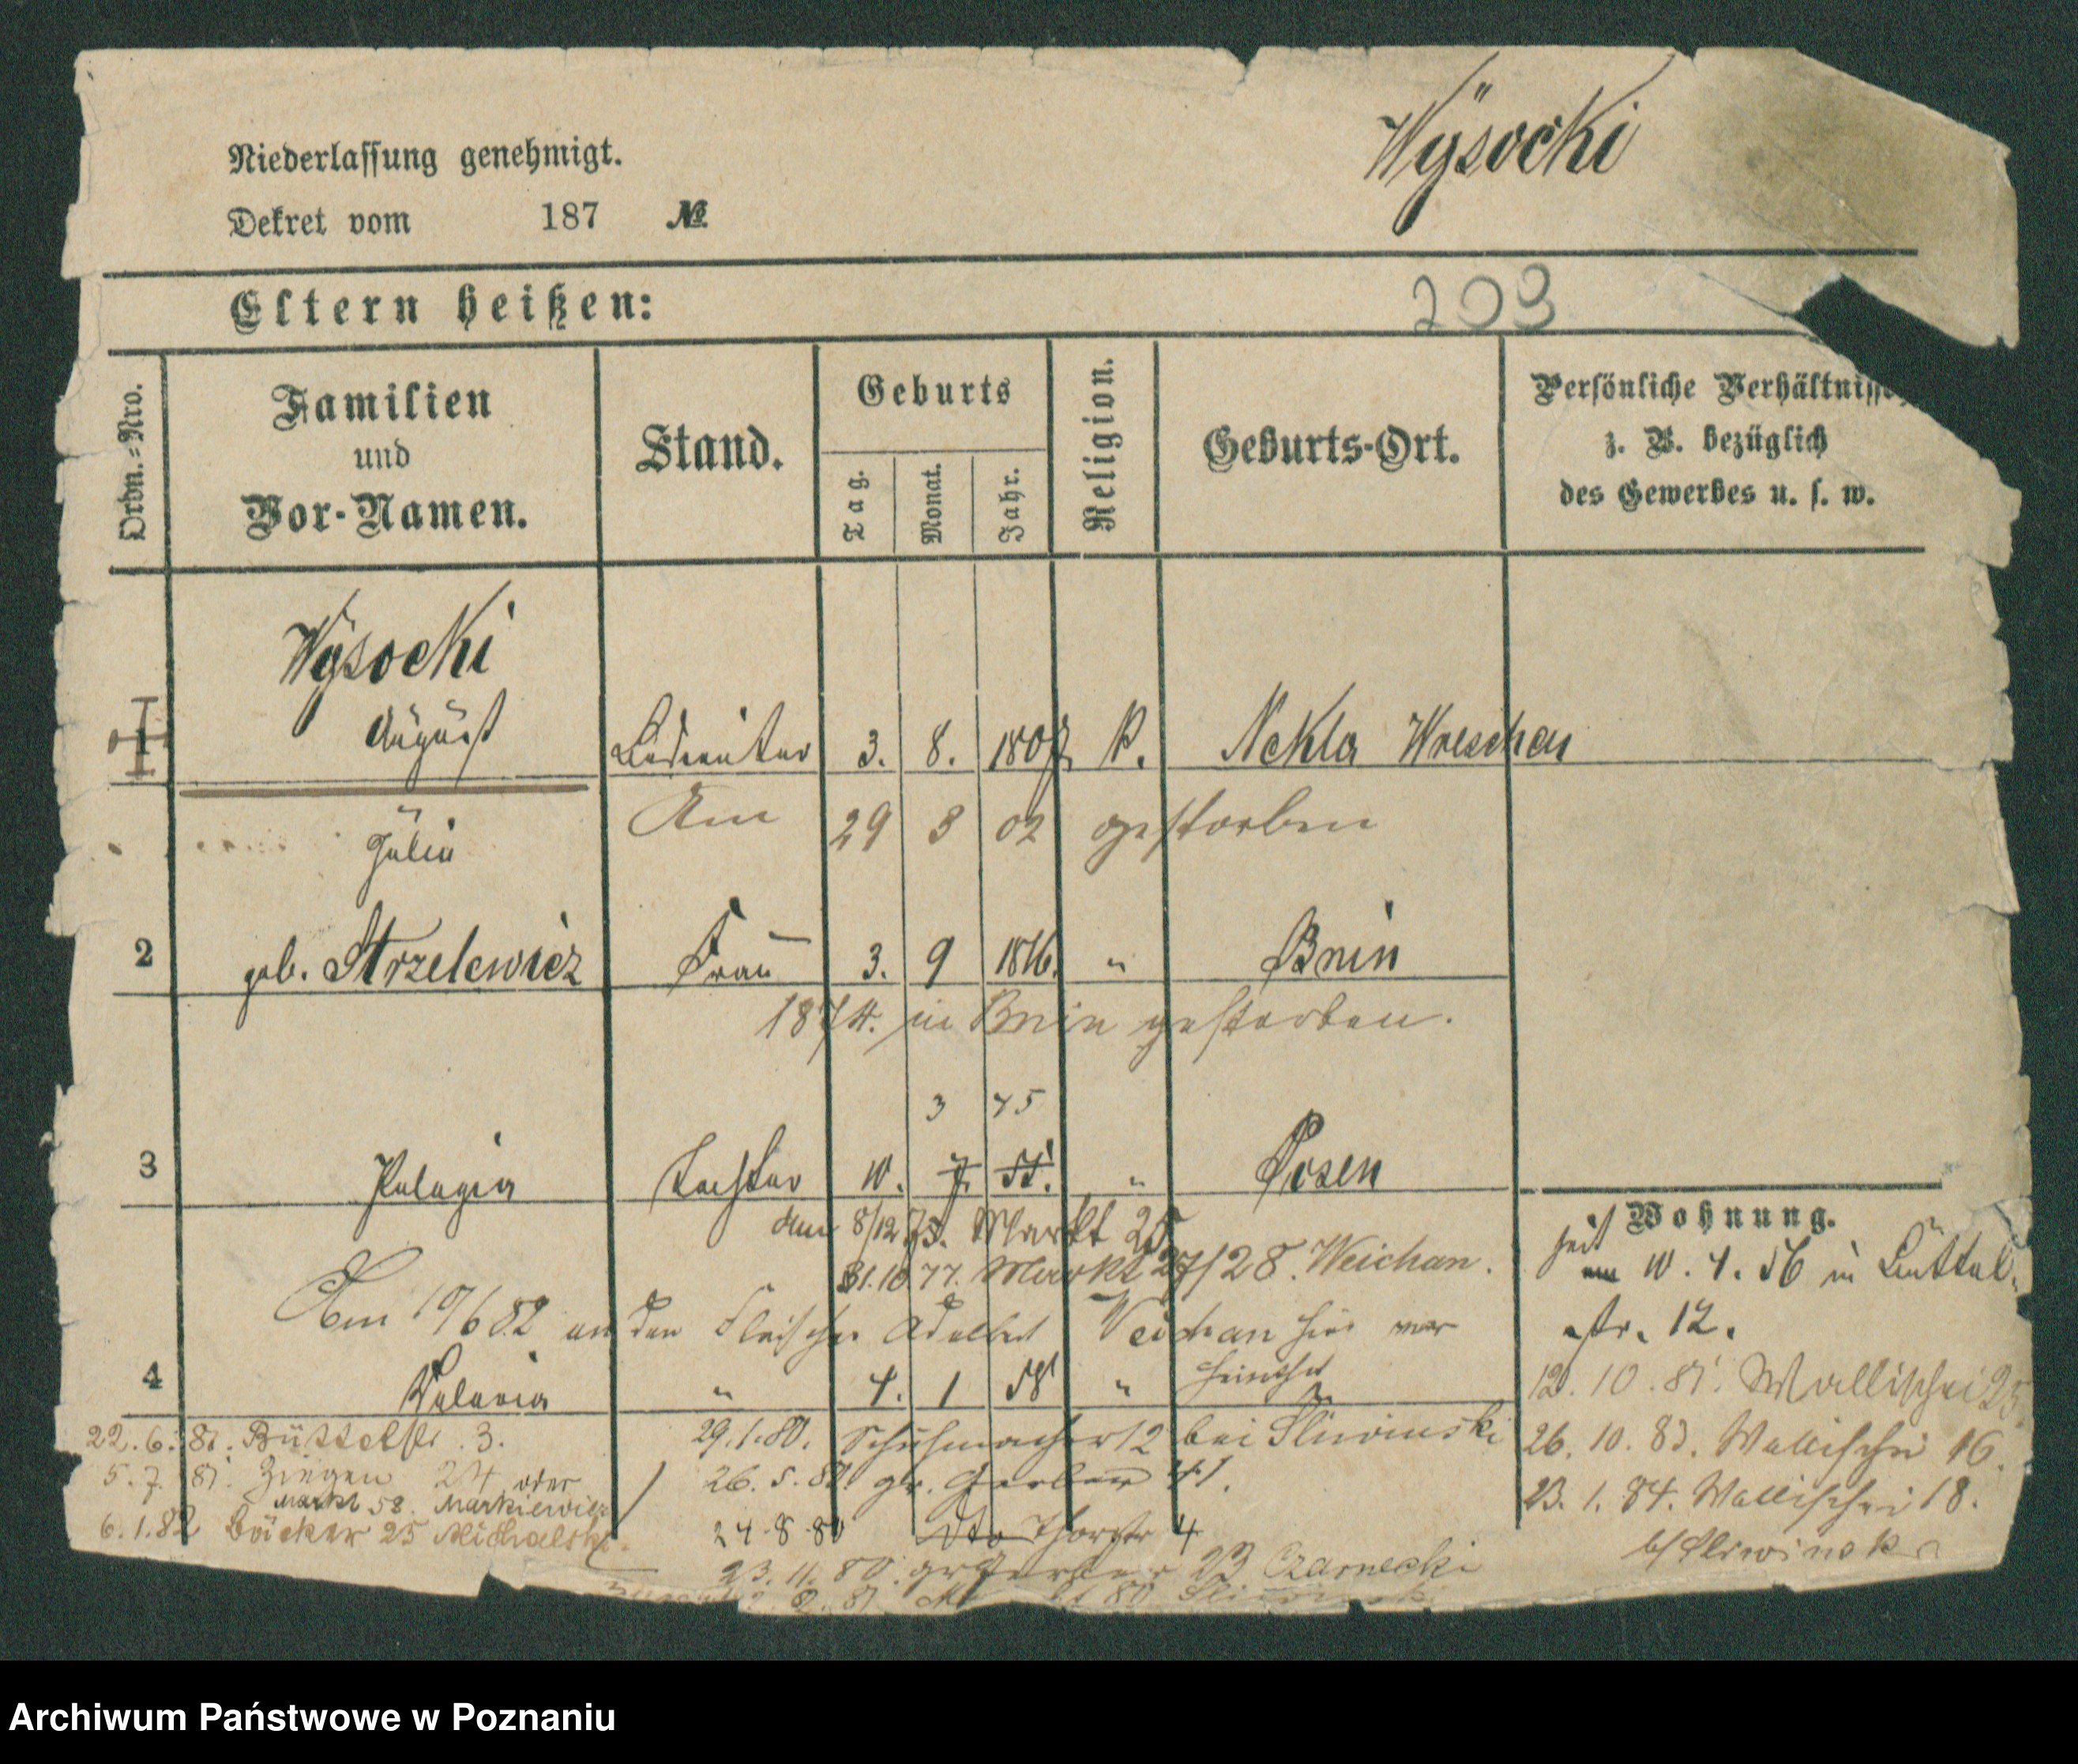 Niederlassung genehmigt.
Wysocki
Dekret vom 187 №
Eltern heißen:
203
Ordn.-Nro.
Familien und Vor-Namen.
Stand.
Geburts
Tag.
Monat.
Jahr.
Religion.
Geburts-Ort.
Persönliche Verhältnisse
z. B. bezüglich
des Gewerbes u. s. w.
Wysocki
1 August 3. 8. K. Nekla Wreschen
Am 29 8 02 gestorben
Julia
2 geb. Strzelewicz Frau 3. 9 1816. " Bnin
1874. in Bnin gestorben.
3 75
3 Pelagia Tochter 10. 7. " Posen
Wohnung.
den 8/12 75. Markt 25
seit 10. 4. 56 in Büttel-
31.10 77. Markt 27/28. Weichan.
str. 12.
Am 10/6 82 an den Fleischer Adalbert Weichan hier ver
heirathet
4 Valeria " 4. 1 58 "
12. 10. 81. Wallischei 25
22. 6. 81. Büttelstr. 3.
29. 1. 80. Schuhmacher 12 bei Sliwinski
26. 10. 83. Wallischei 16.
5. 7. 81. Ziegen 24 oder
26. 5. 80 gr. Gerber 41.
Markt 58. Markiewicz
23. 1. 84. Wallischei 18.
6. 1. 82 Bäcker 25 Michalski.
24. 8. 80 Thorstr 4
b/ Sliwinski
23. 11. 80. gr Gerber 23 Czarnecki
80
Archiwum Państwowe w Poznaniu